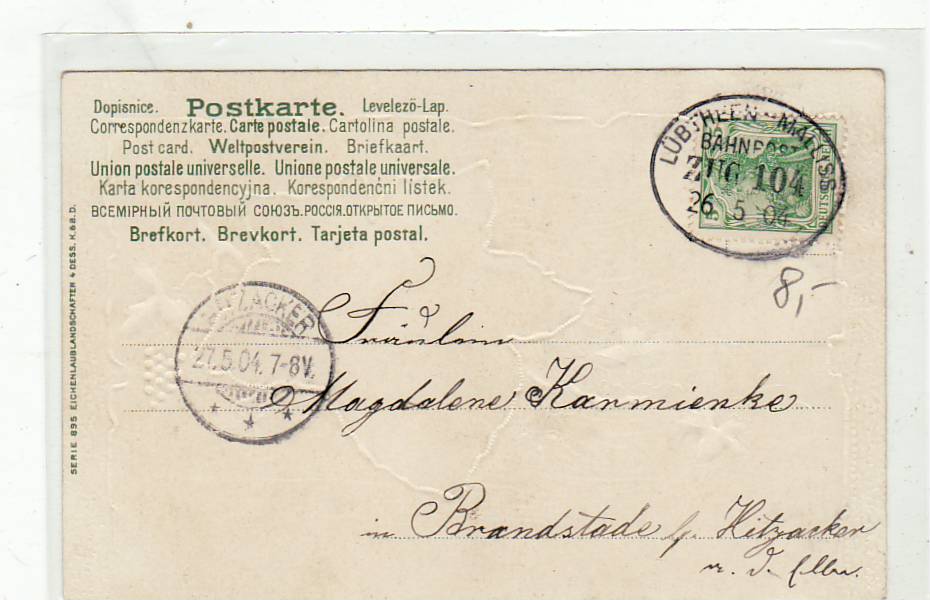 Dopisnice. Postkarte. Levelezö-Lap.
Correspondenzkarte. Carte postale. Cartolina postale.
Post card. Weltpostverein. Briefkaart.
Union postale universelle. Unione postale universale.
Karta korespondencyjna. Korespondenčni listek.
ВСЕМІРНЫЙ ПОЧТОВЫЙ СОЮЗЪ.РОССІЯ.ОТКРЫТОЕ ПИСЬМО.
Brefkort. Brevkort. Tarjeta postal.
LÜBTHEEN - MALLISS
BAHNPOST
ZUG 104
26 5 04
8,-
HITZACKER
27.5.04. 7-8V.
Fräulein
Magdalene Karmienke
in Brandstade b. Hitzacker
a. d. Elbe.
SERIE 895 EICHENLAUBLANDSCHAFTEN 4 DESS. K.&B.D.